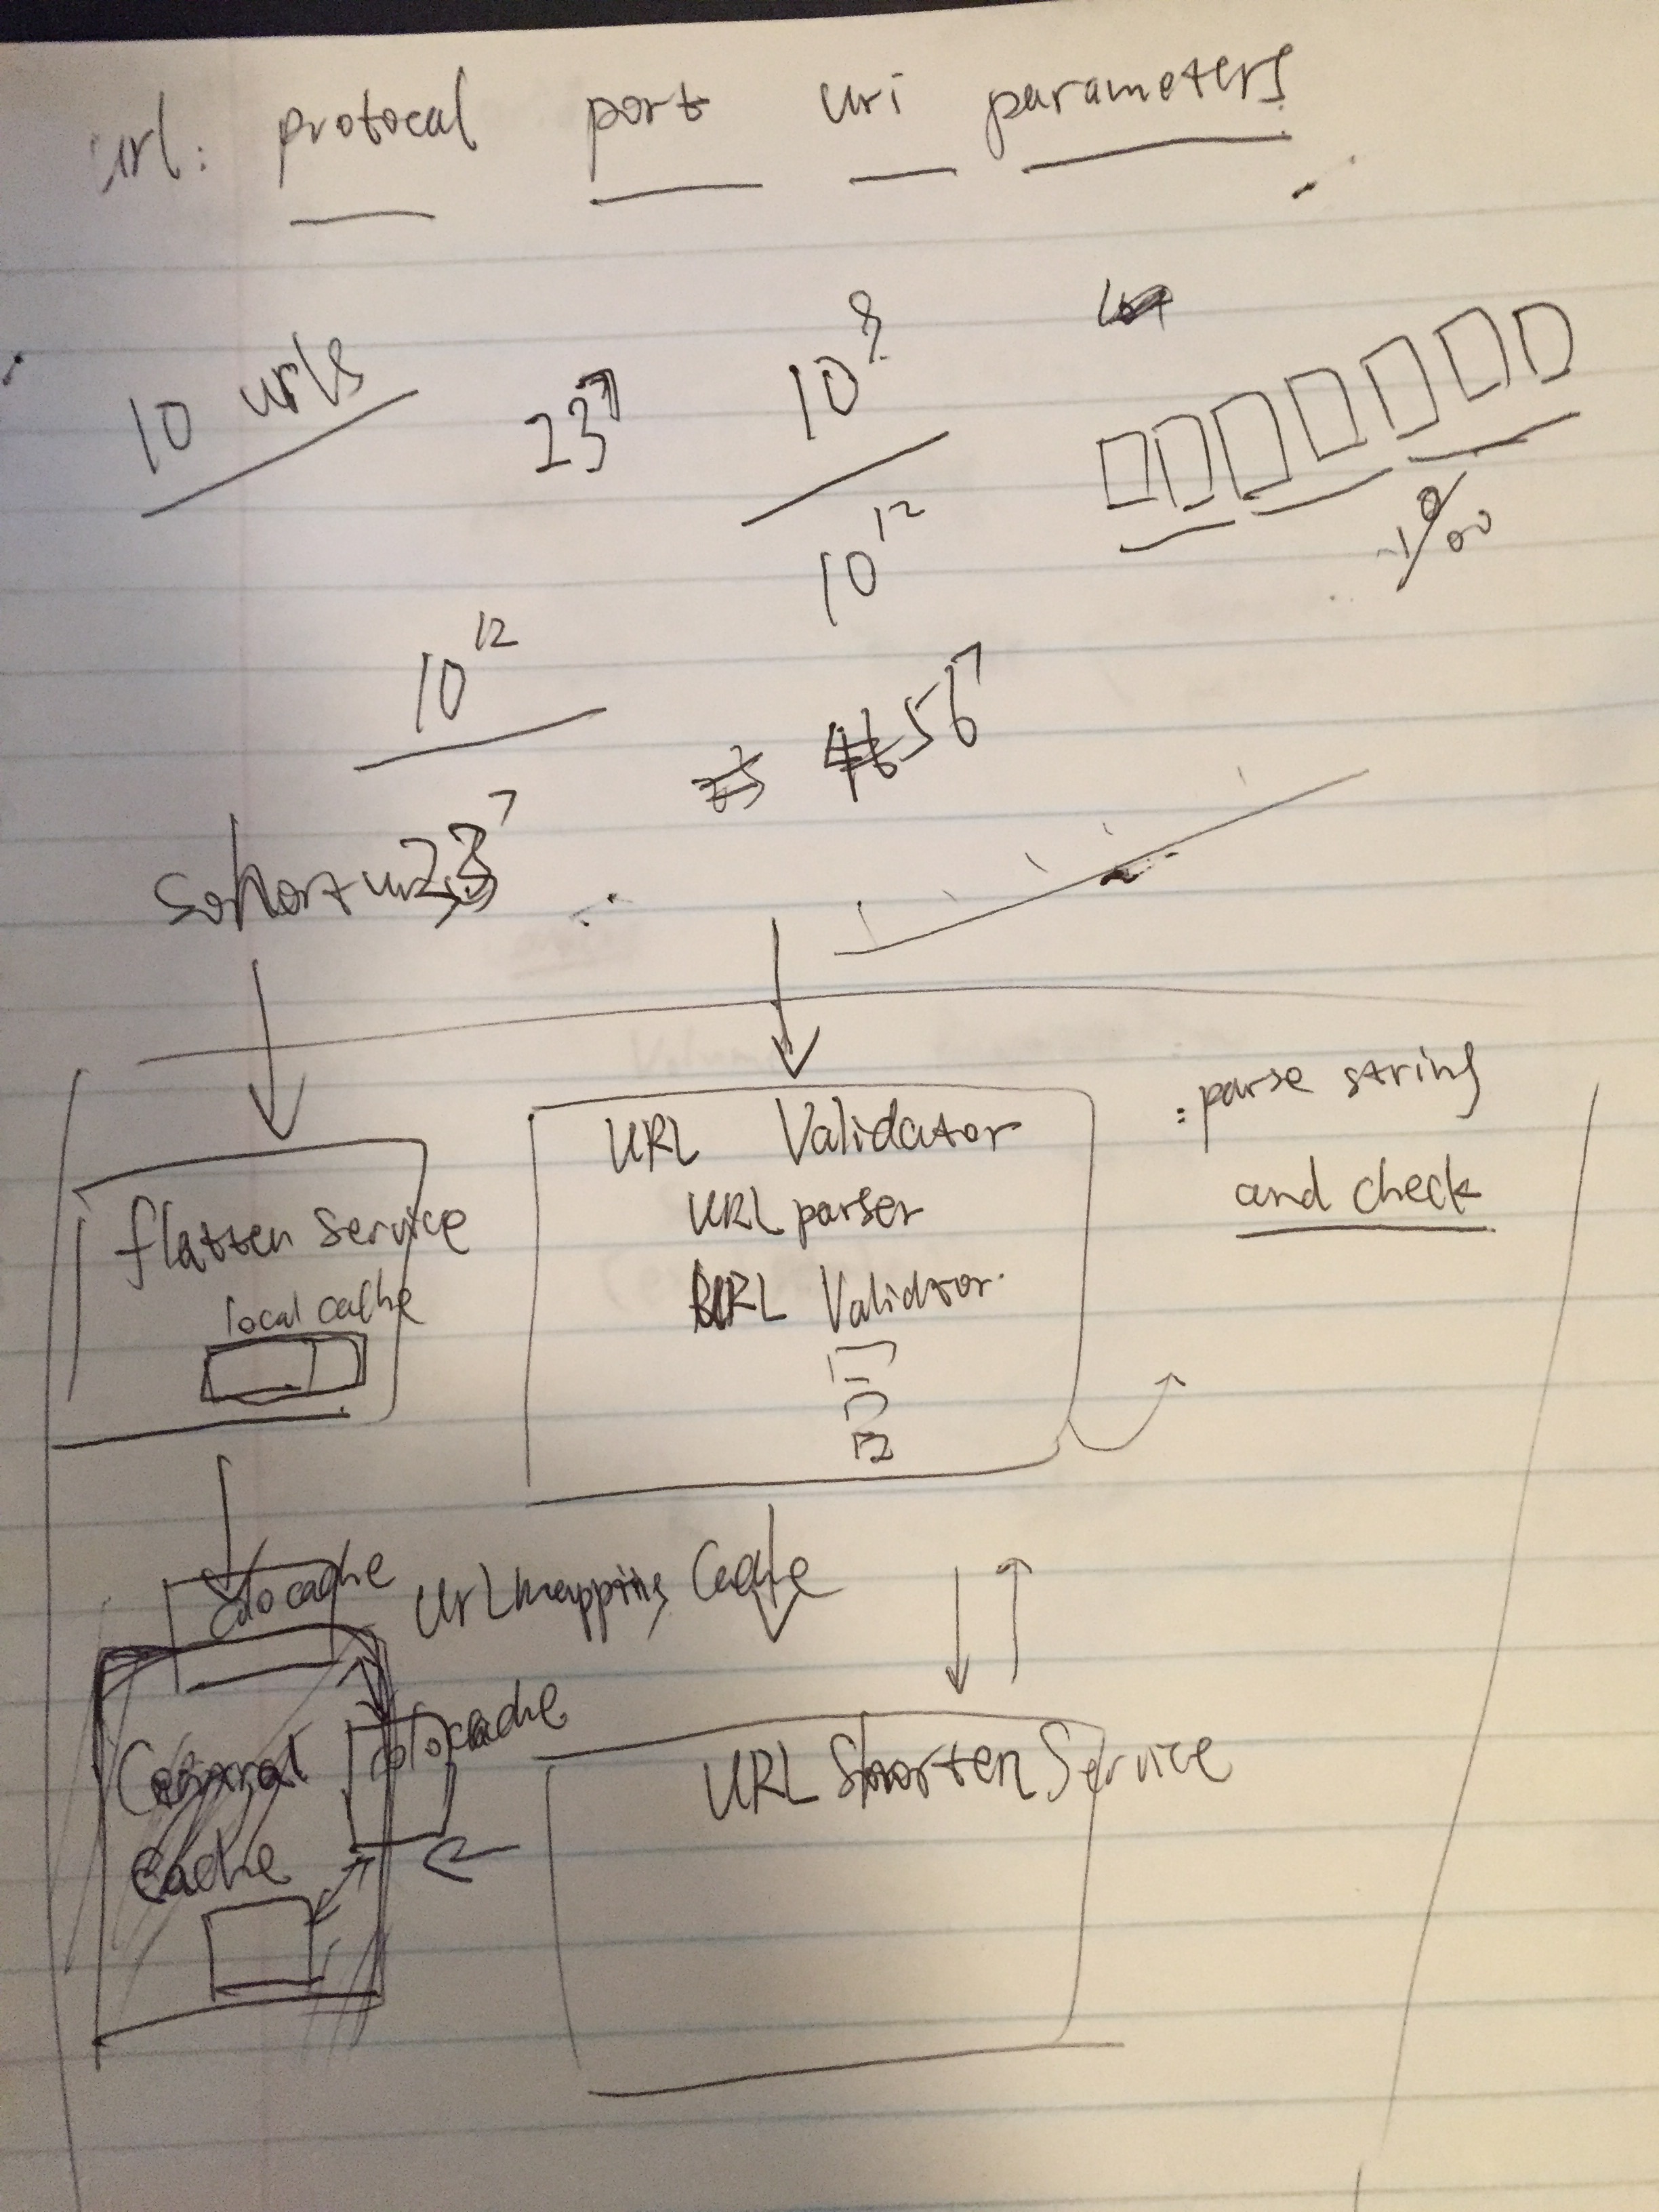 url: protocal port uri parameters
10 urls
23⁷
10⁸
10¹²
10¹²
56⁷
23⁷
flatten service
local cache
URL Validator
URL parser
URL Validtor
: parse string
and check
colo cache
UrL mapping Cache
colo cache
Cache
URL Shorten Service